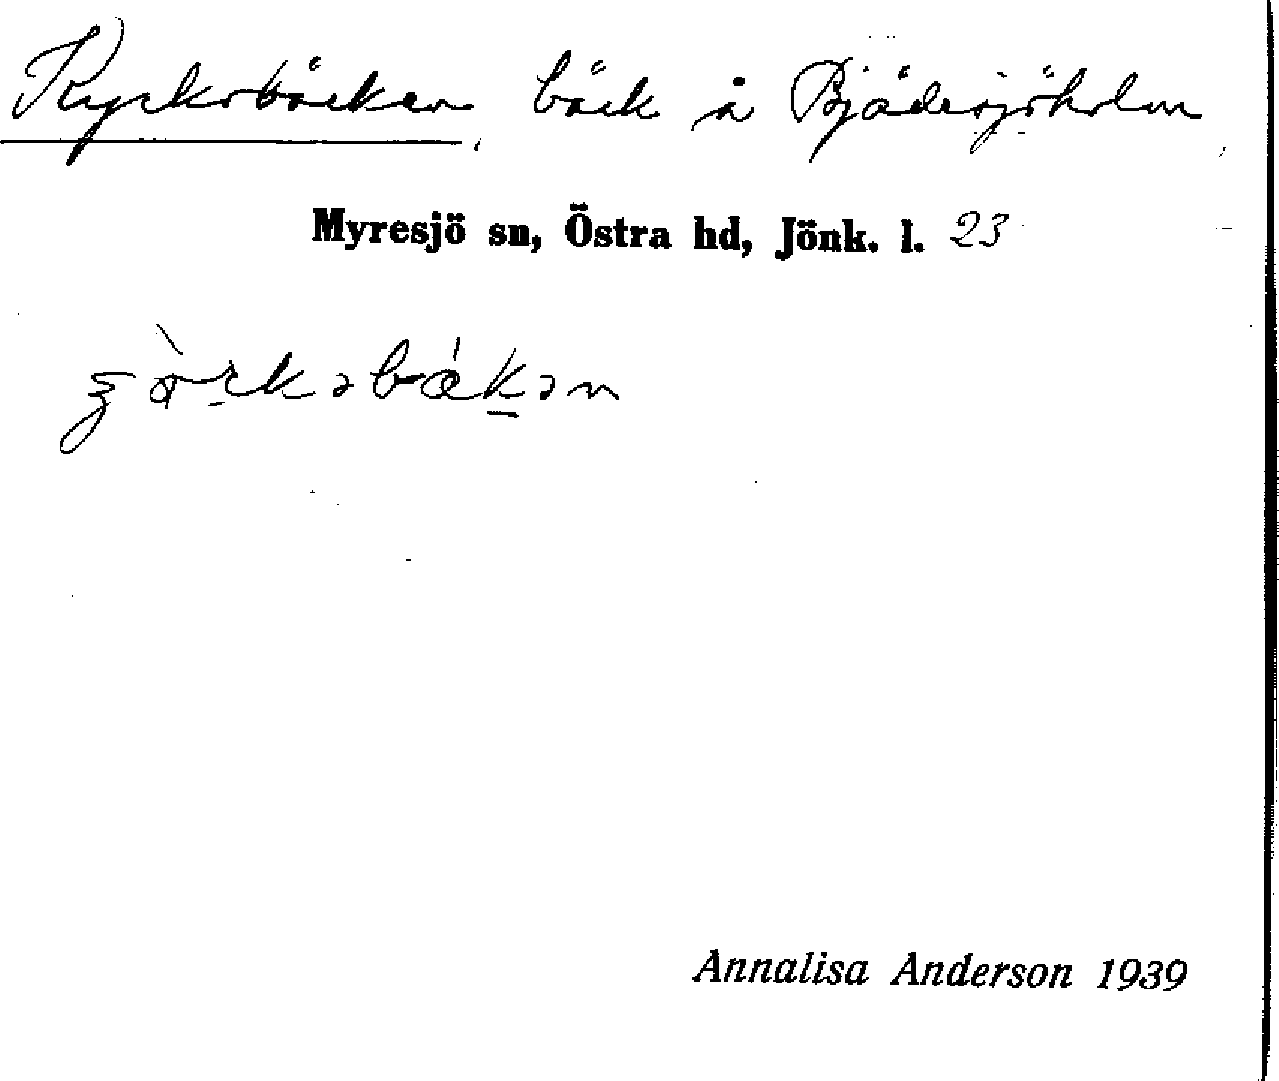 Kyrkobäcken, bäck å Bjädesjöholm,
Myresjö sn, Östra hd, Jönk. l. 23
Annalisa Anderson 1939